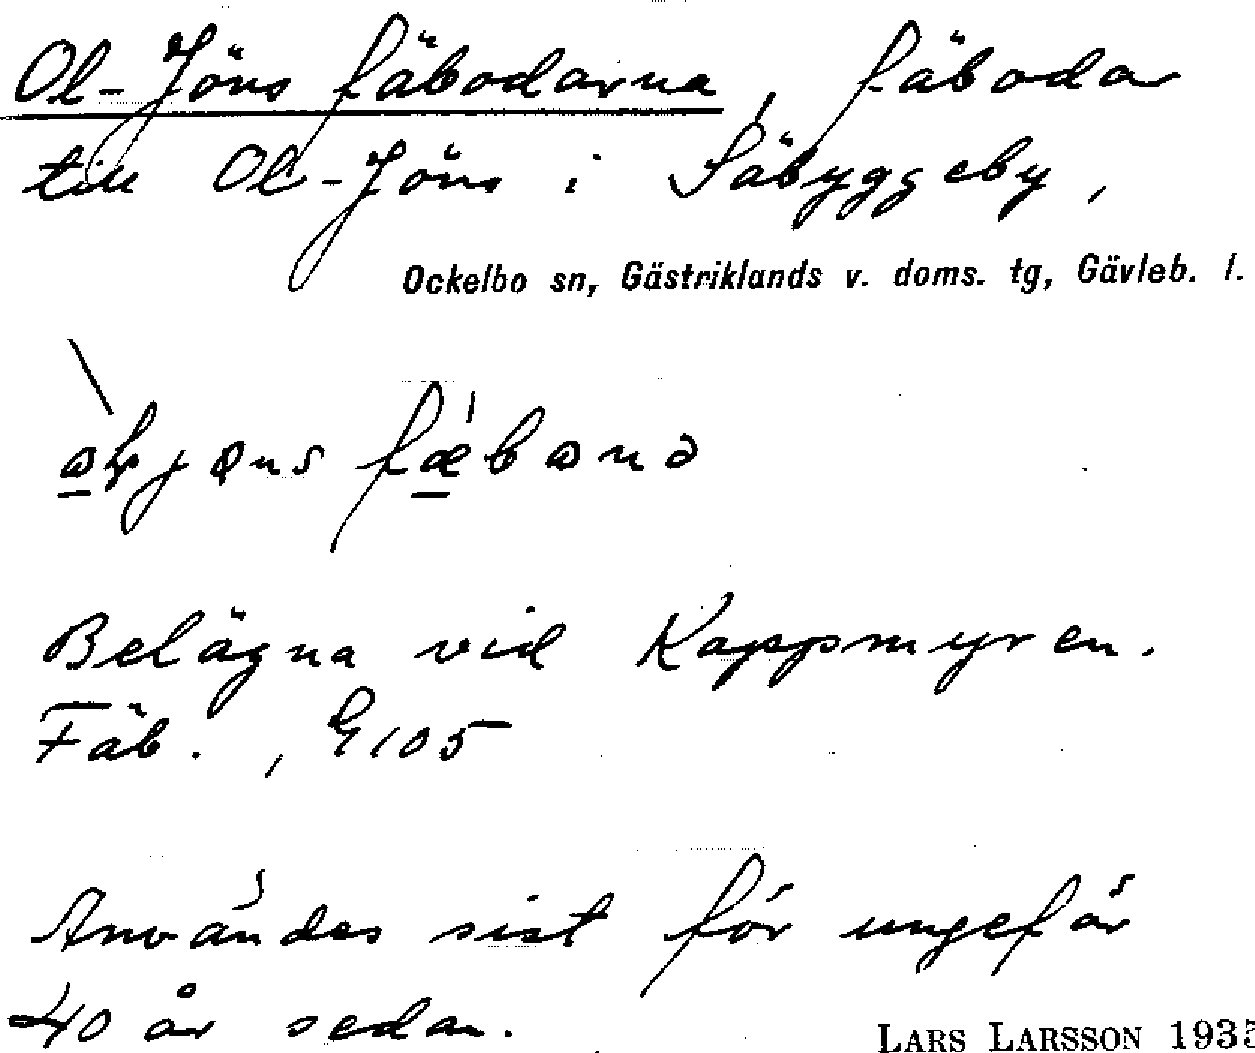 Ol-Jöns fäbodarna, fäbodar
till Ol-Jöns i Säbyggeby,
Ockelbo sn, Gästriklands v. doms. tg, Gävleb. l.
Belägna vid Kappmyren.
Fäb., G105
Användes sist för ungefär
40 år sedan.
LARS LARSSON 1935